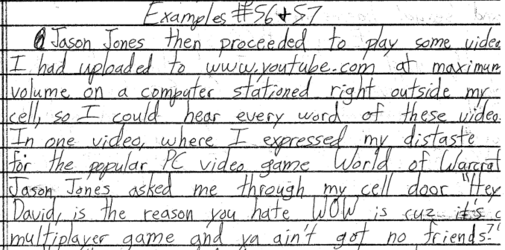 Examples #56+57
Jason Jones then proceeded to play some video
I had uploaded to www.youtube.com at maximum
volume on a computer stationed right outside my
cell, so I could hear every word of these video
In one video, where I expressed my distaste
for the popular PC video game World of Warcraf
Jason Jones asked me through my cell door "Hey
David, is the reason you hate WOW is cuz it's a
multiplayer game and ya ain't got no friends?"